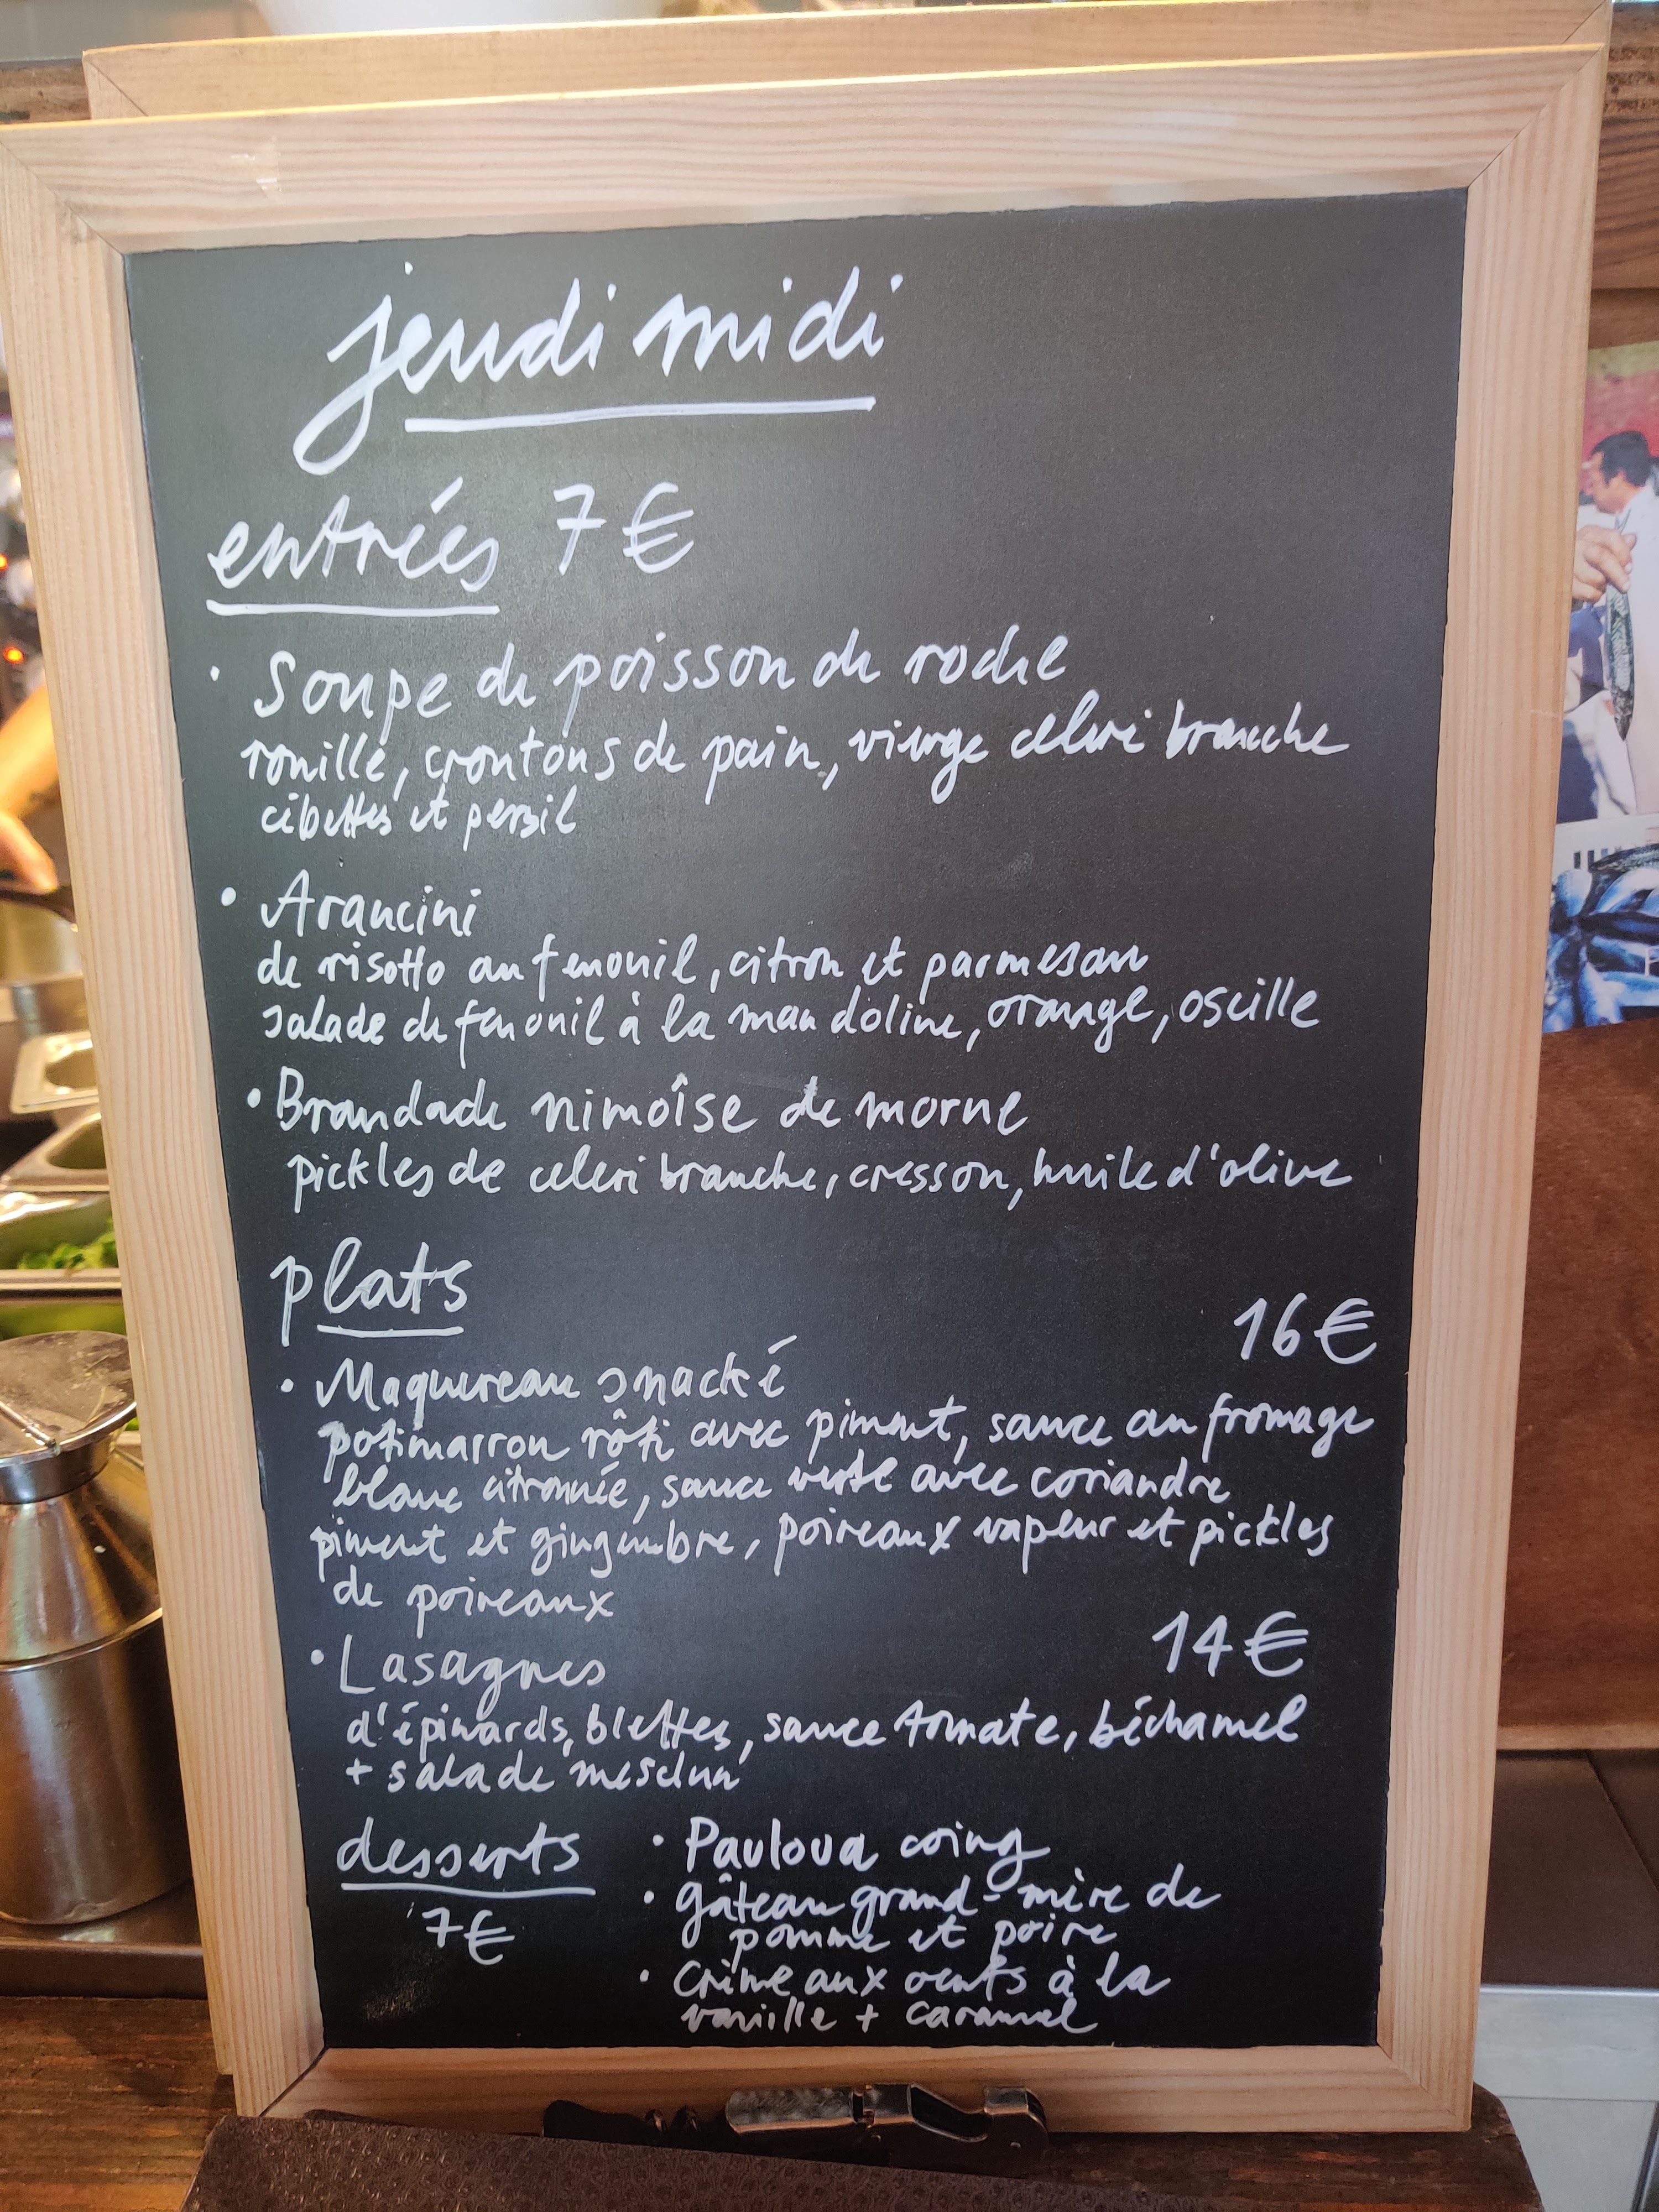 jeudi midi
entrées 7€
· Soupe de poisson de roche
rouille, croutons de pain, vierge céleri branche
cibettes et persil
· Arancini
de risotto au fenouil, citron et parmesan
salade de fenouil à la mandoline, orange, oseille
· Brandade nimoîse de morue
pickles de celeri branche, cresson, huile d'olive
plats
16€
· Maquereau snacké
potimarron rôti avec piment, sauce au fromage
blanc citronnée, sauce verte avec coriandre
piment et gingembre, poireaux vapeur et pickles
de poireaux
14€
· Lasagnes
d'épinards, blettes, sauce tomate, béchamel
+ salade mesclun
desserts
7€
· Pavlova coing
· gâteau grand-mère de
pomme et poire
· Crème aux oeufs à la
vanille + caramel